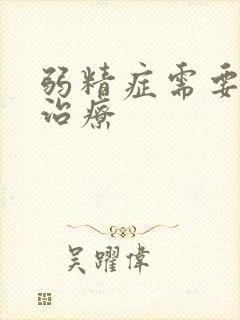 弱精症需要
治療
吴躍偉